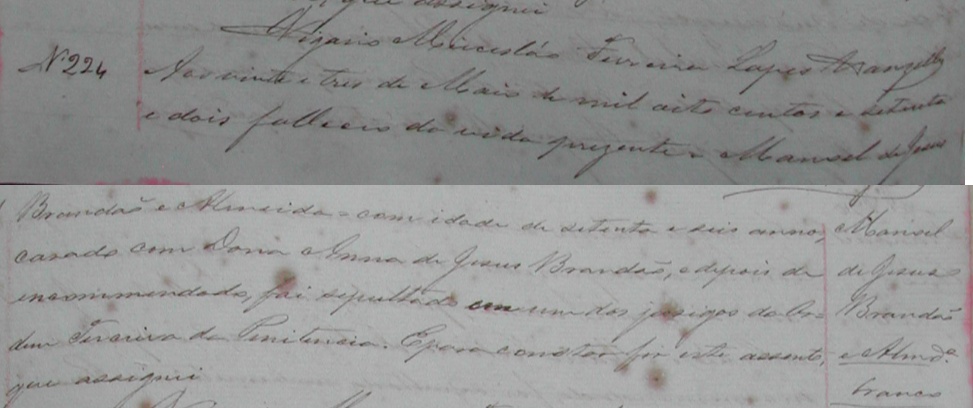 que assignei
Vigario Miceslás Ferreira Lopes Wanzeller
Nº 224
Aos vinte e tres de Maio de mil oito centos e setenta
e dois falleceo da vida prezente = Manoel de Jesus
Brandaõ e Almeida = com idade de setenta e seis annos,
casado com Dona Anna de Jesus Brandaõ, e depois de
encommendado, foi sepultado em um dos jasigos da Or-
dem Terceira da Penitencia. E para constar fiz este assento,
que assignei
Manoel
de Jesus
Brandaõ
e Almdª.
branco